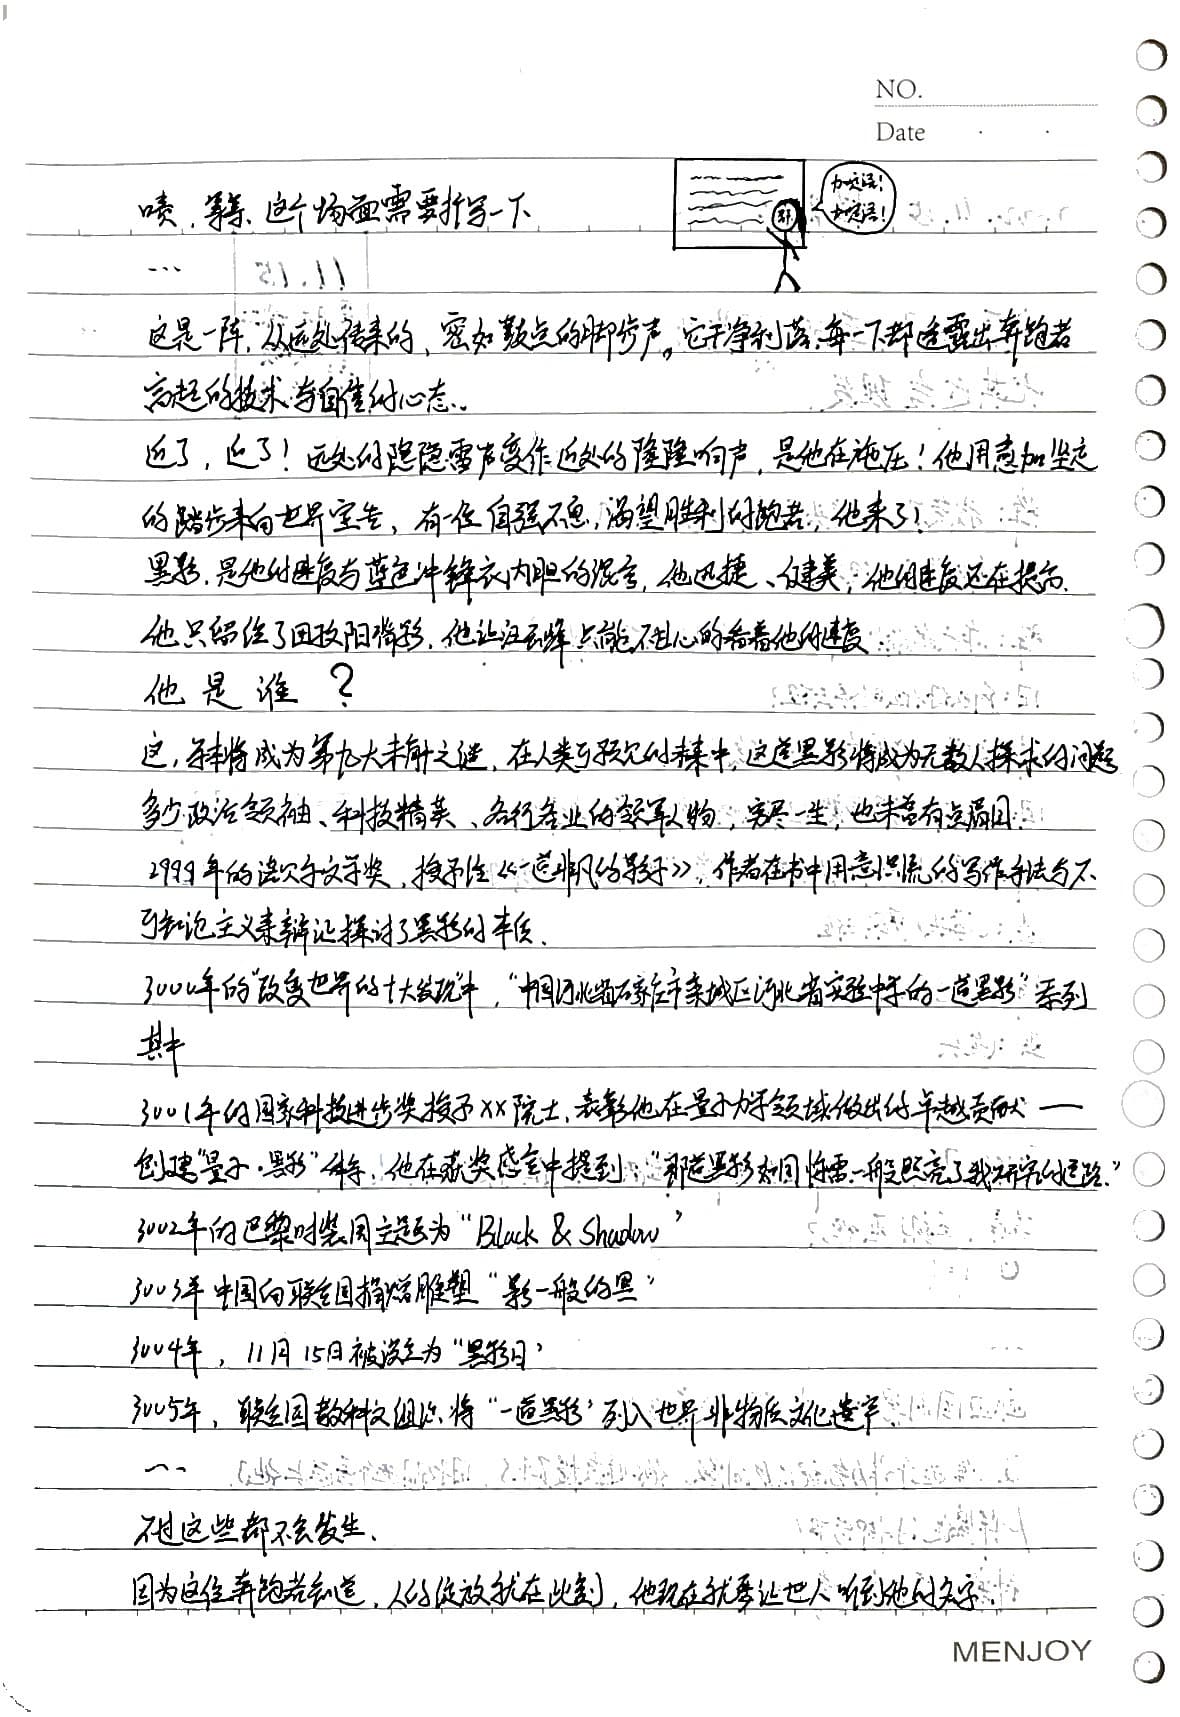 NO.
Date
啧，等等，这个场面需要描写一下
加定语！
加定语！
…
这是一阵，从远处传来的，密如鼓点的脚步声。它干净利落，每一下都透露出奔跑者
高超的技术与自信的心态。
近了，近了！远处的隐隐雷声变作近处的隆隆响声，是他在施压！他用愈加坚定
的踏步来向世界宣告，有一位自强不息，渴望胜利的跑者，他来了！
黑影，是他的速度与蓝色冲锋衣内胆的混合，他迅捷、健美，他的速度还在提高，
他只留给了田政阳背影，他让汪云峰只能不甘心的看着他的速度
他是谁？
这，本将成为第九大未解之谜，在人类可预见的未来中，这道黑影将成为无数人探求的问题
多少政治领袖、科技精英、各行各业的领军人物，穷尽一生，也未曾有点眉目．
2999年的诺贝尔文学奖，授予给《一道非凡的影子》，作者在书中用意识流的写作手法与不
可知论主义来辩证探讨了黑影的本质．
3000年的“改变世界的十大发现”中，“中国河北省石家庄市栾城区河北省实验中学的一道黑影”系列
其中
3001年的国家科技进步奖授予XX院士，表彰他在量子力学领域做出的卓越贡献——
创建“量子·黑影”体系，他在获奖感言中提到：“那道黑影如同惊雷一般照亮了我研究的道路．”
3002年的巴黎时装周主题为“Black & Shadow”
3003年中国向联合国捐赠雕塑“影一般的黑”
3004年，11月15日被设立为“黑影日”
3005年，联合国教科文组织将“一道黑影”列入世界非物质文化遗产．
…
不过这些都不会发生．
因为这位奔跑者知道，人的绽放就在此刻，他现在就要让世人听到他的名字．
MENJOY